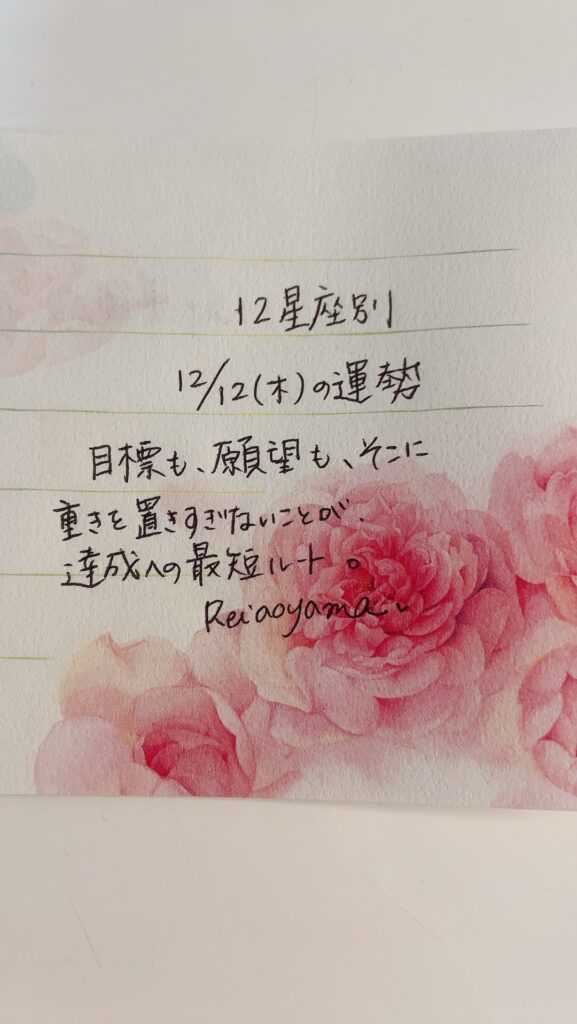 12星座別
12/12(木)の運勢
目標も、願望も、そこに
重きを置きすぎないことが、
達成への最短ルート。
Reiaoyama